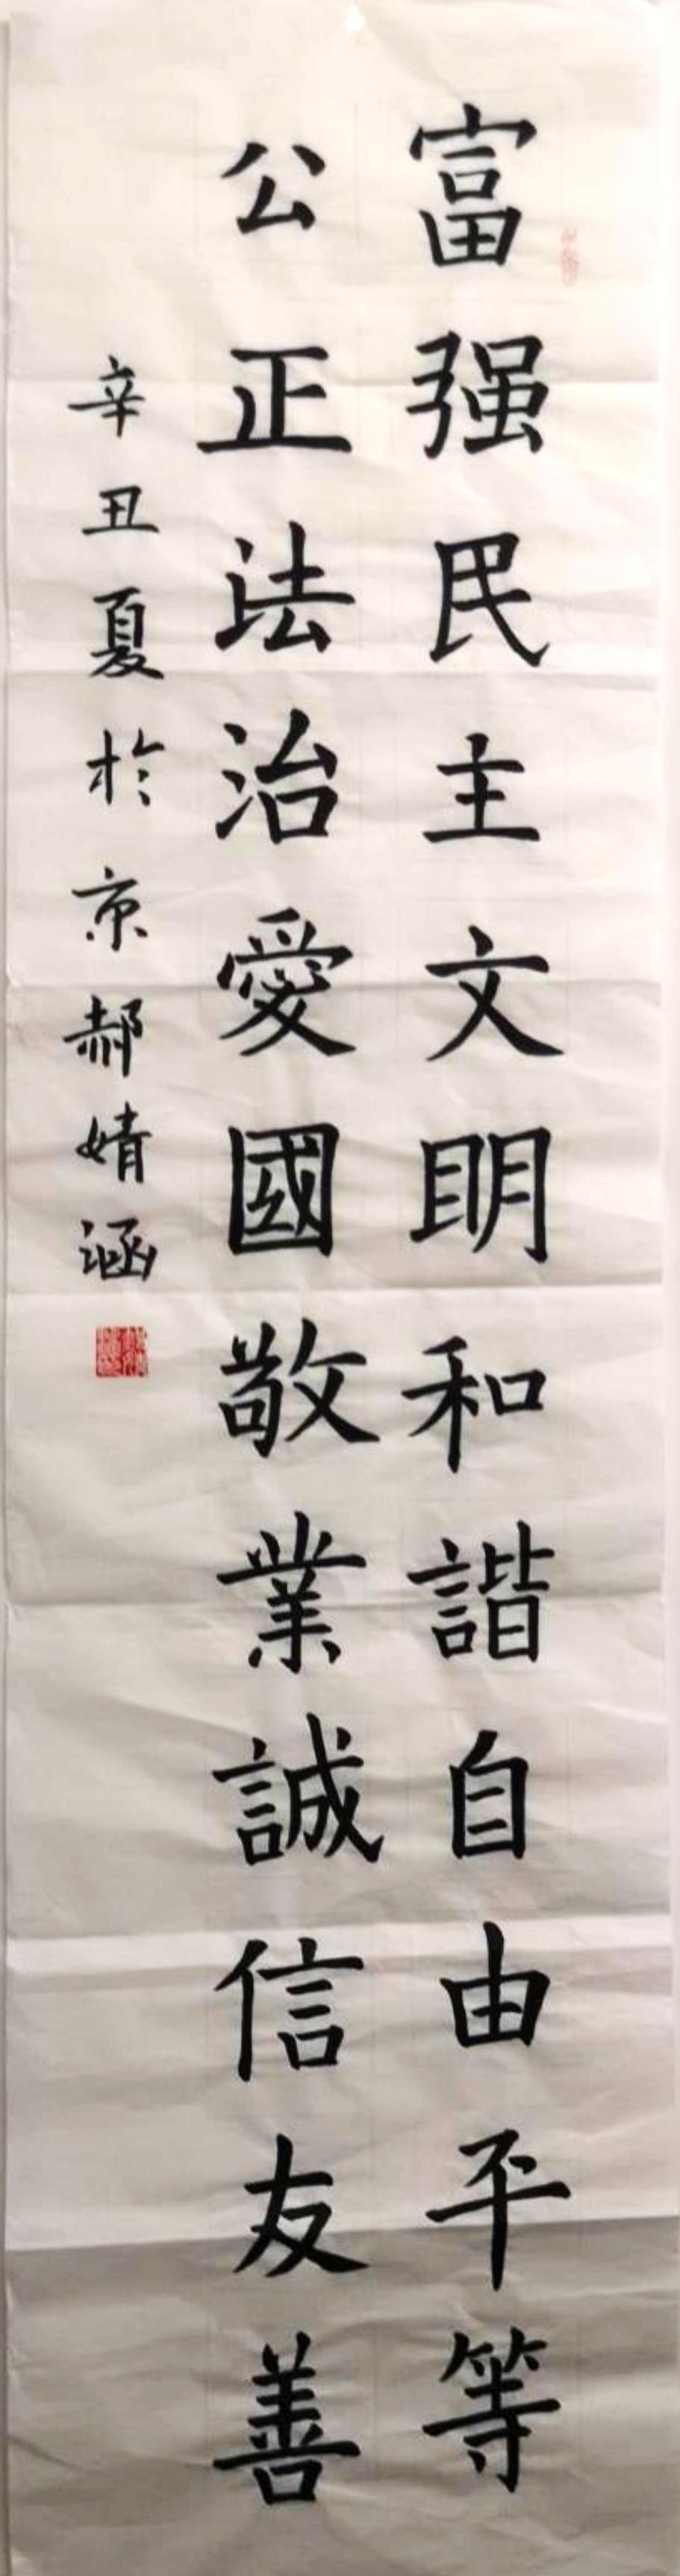 富强民主文明和諧自由平等
公正法治愛國敬業誠信友善
辛丑夏於京郝婧涵